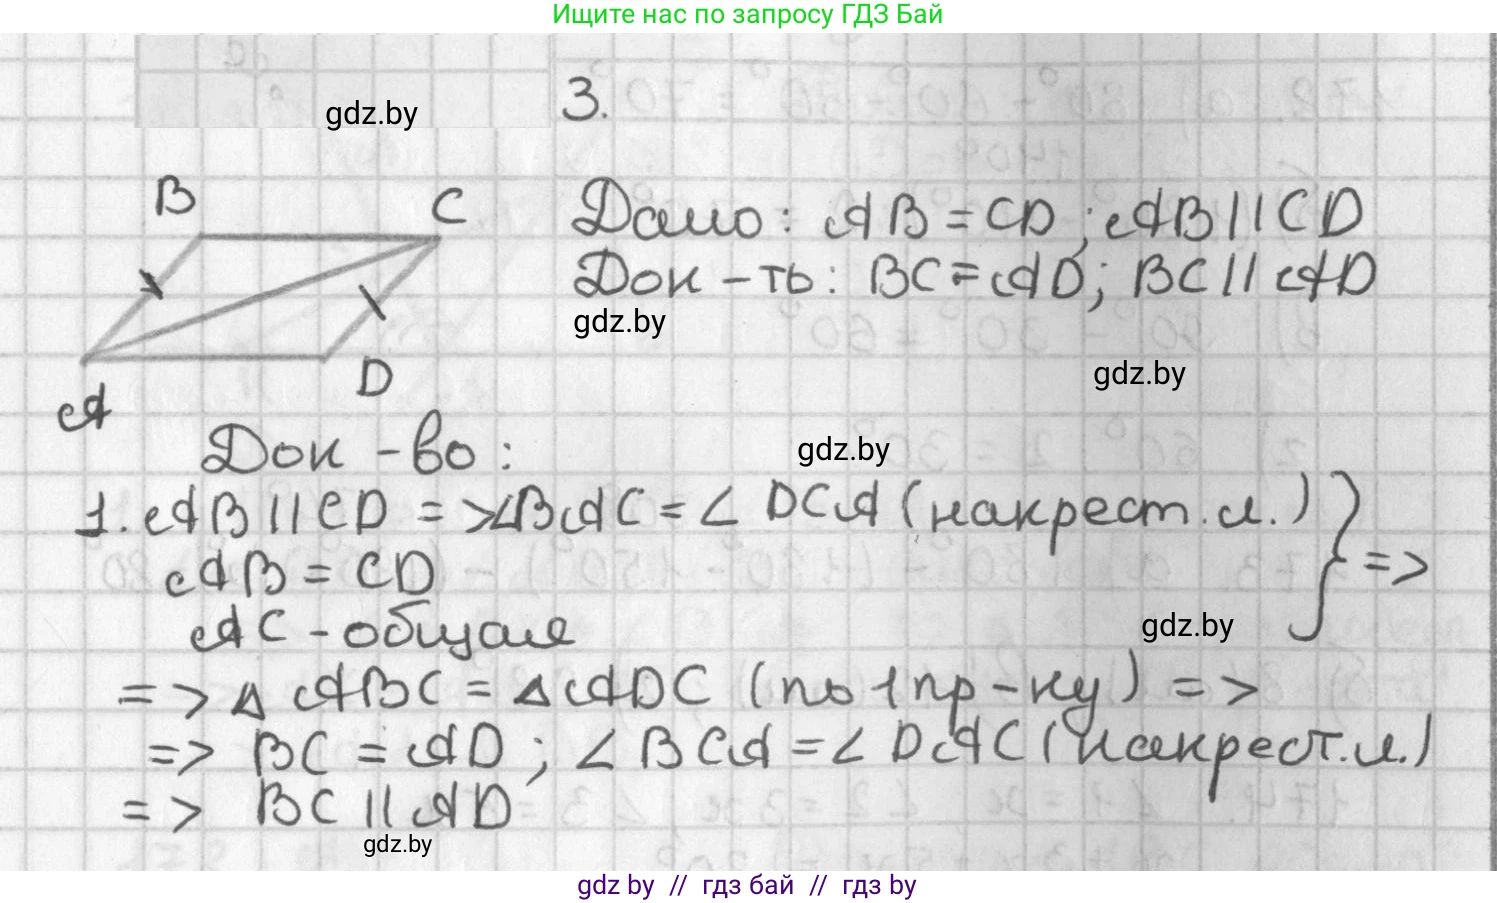 Ищите нас по запросу ГДЗ Бай
gdz.by
3.
B
C
Дано: AB = CD; AB || CD
Док-ть: BC = AD; BC || AD
gdz.by
gdz.by
D
A
Док-во:
gdz.by
1. AB || CD => ∠BAC = ∠DCA (накрест.л.)
AB = CD
=>
AC - общая
gdz.by
=> △ ABC = △ ADC (по 1 пр-ку) =>
=> BC = AD; ∠BCA = ∠DAC (накрест.л.)
=> BC || AD
gdz.by
gdz by // гдз бай // гдз by